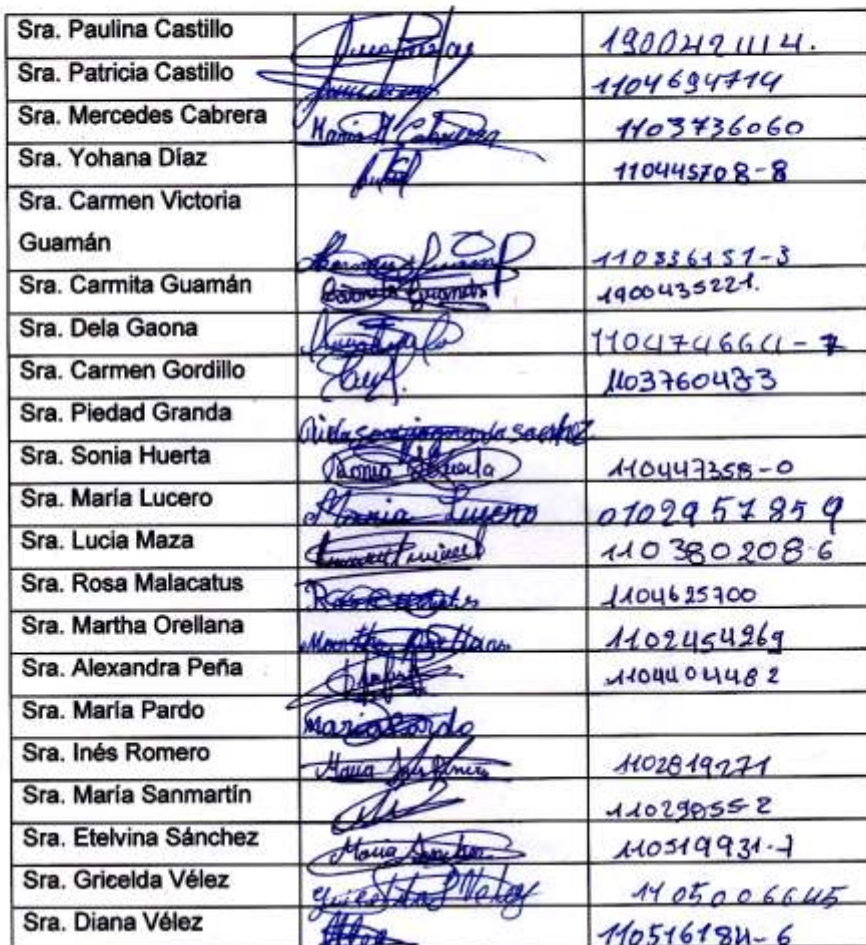 Sra. Paulina Castillo
Sra. Patricia Castillo 1104694714
Sra. Mercedes Cabrera Maria M Cabrera 1103736060
Sra. Yohana Díaz 110445708-8
Sra. Carmen Victoria
Guamán
Sra. Carmita Guamán Carmita Guamán 1900435221.
Sra. Dela Gaona
Sra. Carmen Gordillo
Sra. Piedad Granda
Sra. Sonia Huerta Sonia Huerta 110447358-0
Sra. María Lucero Maria Lucero 0102957859
Sra. Lucia Maza 110380208-6
Sra. Rosa Malacatus 1104625700
Sra. Martha Orellana Martha Orellana 1102454269
Sra. Alexandra Peña 1104404482
Sra. María Pardo Maria Pardo
Sra. Inés Romero 1102819271
Sra. María Sanmartín 11029855-2
Sra. Etelvina Sánchez 110519931-7
Sra. Gricelda Vélez 1105006645
Sra. Diana Vélez 110516184-6